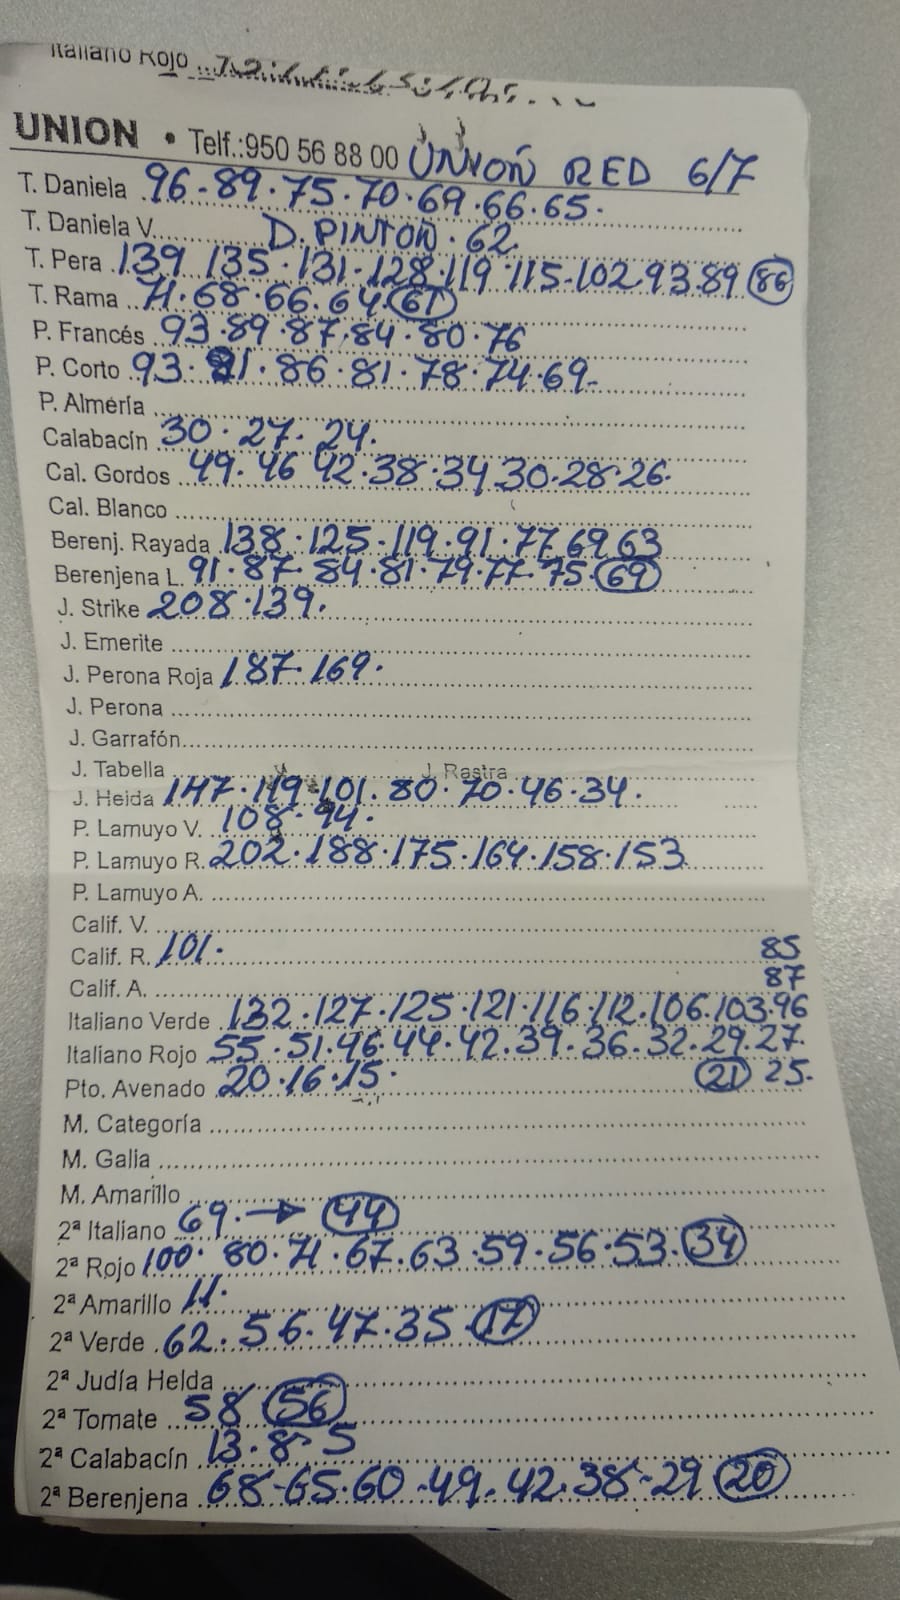 Italiano Rojo
UNION • Telf.:950 56 88 00 UNION RED 6/7
T. Daniela 96-89.75.70.69.66.65.
T. Daniela V. D. PINTON. 62
T. Pera 139 135.131.128.119.115-102.93.89 86
T. Rama 71.68.66.64 61
P. Francés 93.89.87.84.80.76
P. Corto 93.91.86.81.78.74.69-
P. Almería
Calabacín 30.27.24.
Cal. Gordos 49.46 42.38.34 30.28.26.
Cal. Blanco
Berenj. Rayada 138.125.119.91.77 69 63
Berenjena L. 91.87.84.81.79.77.75. 69
J. Strike 208.139.
J. Emerite
J. Perona Roja 187.169.
J. Perona
J. Garrafón
J. Tabella J. Rastra
J. Helda 147.119.101.80.70.46.34.
P. Lamuyo V. 108.94.
P. Lamuyo R. 202.188.175.164.158.153
P. Lamuyo A.
Calif. V.
Calif. R. 101. 85
Calif. A. 87
Italiano Verde 132.127.125.121.116.112.106.103.96
Italiano Rojo 55.51.46.44.42.39.36.32.29.27.
Pto. Avenado 20.16.15. 21 25.
M. Categoría
M. Galia
M. Amarillo
2ª Italiano 69. → 44
2ª Rojo 100.80.71.67.63.59.56.53. 34
2ª Amarillo 11.
2ª Verde 62.56.47.35 17
2ª Judía Helda
2ª Tomate 58 56
2ª Calabacín 13.8.5
2ª Berenjena 68-65.60.49.42.38-29 20